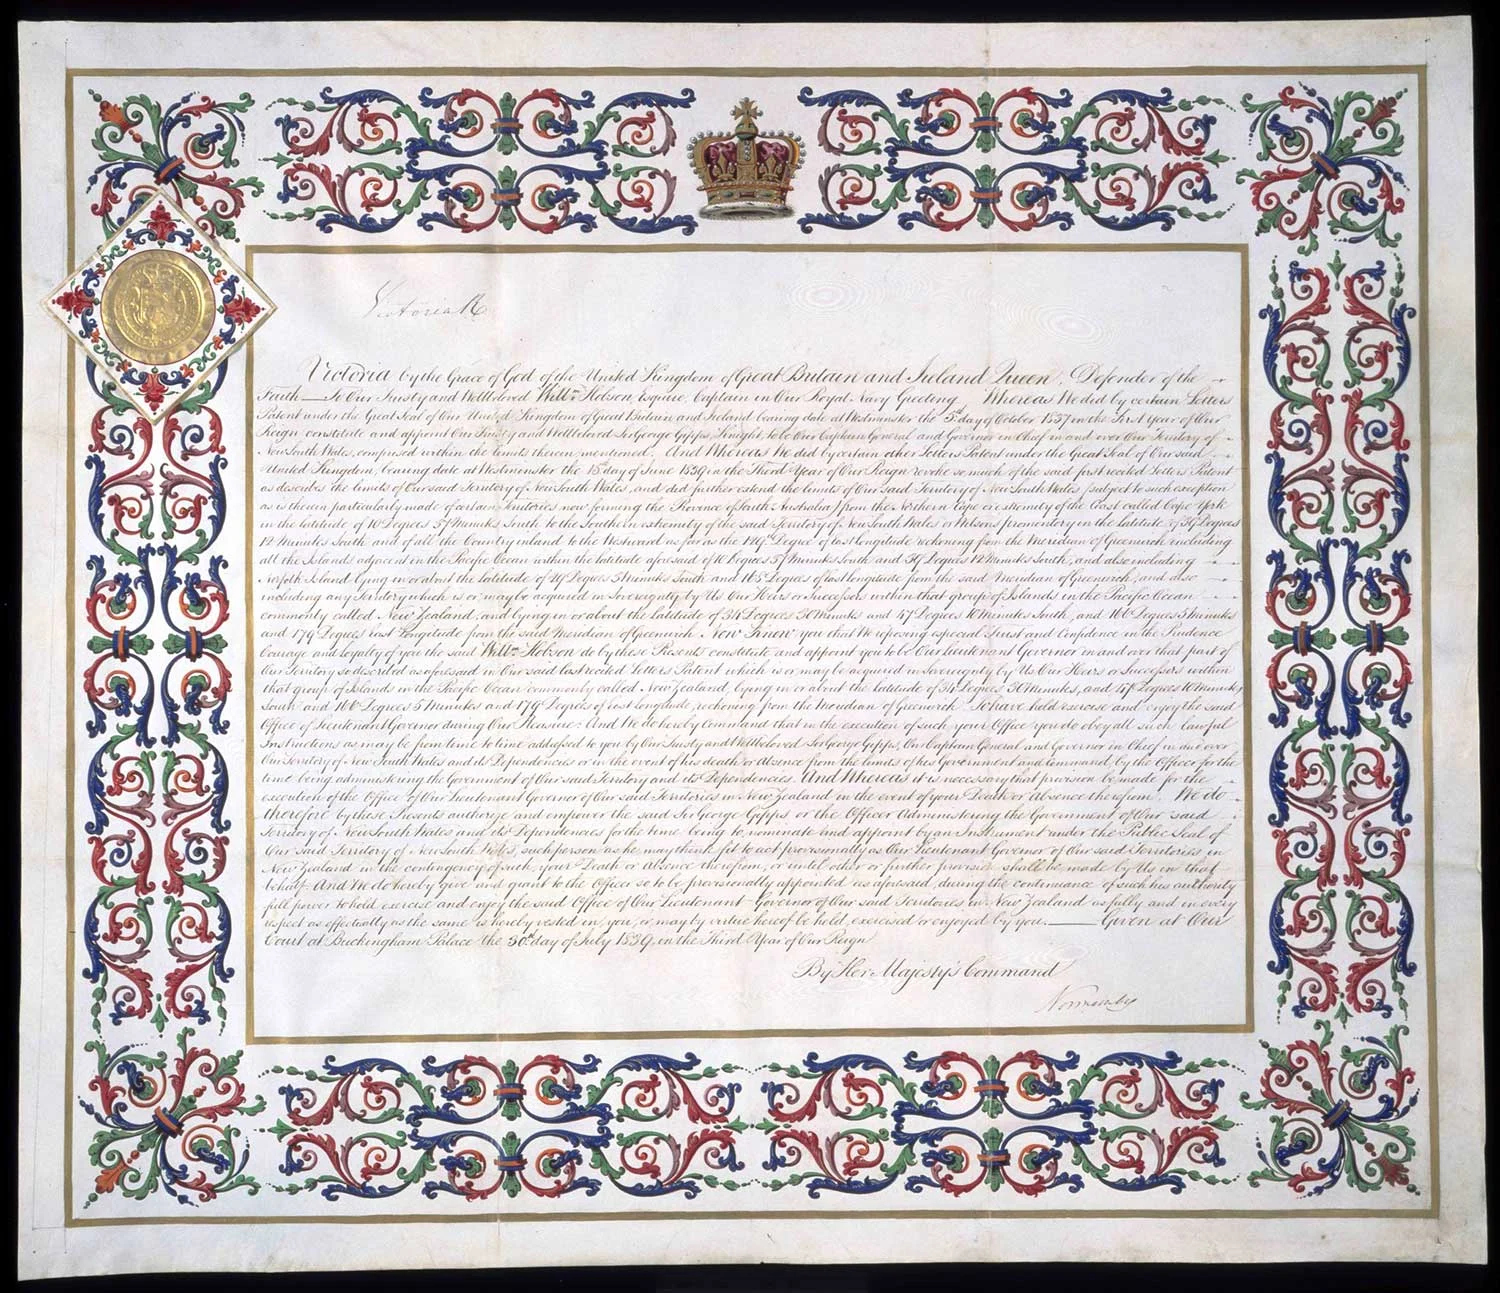 Victoria R
Victoria by the Grace of God of the United Kingdom of Great Britain and Ireland Queen, Defender of the
Faith — To Our Trusty and Wellbeloved Willm. Hobson Esquire, Captain in Our Royal Navy Greeting Whereas We did by certain Letters
Patent under the Great Seal of Our United Kingdom of Great Britain and Ireland bearing date at Westminster the 5th day of October 1837 in the First Year of Our
Reign constitute and appoint Our Trusty and Wellbeloved Sir George Gipps, Knight, to be Our Captain General and Governor in Chief in and over Our Territory of
New South Wales, comprised within the limits therein mentioned, And Whereas We did by certain other Letters Patent under the Great Seal of Our said
United Kingdom, bearing date at Westminster the 15 day of June 1839 in the Third Year of Our Reign revoke so much of the said first recited Letters Patent
as describes the limits of Our said Territory of New South Wales, and did further extend the limits of Our said Territory of New South Wales (subject to such exception
as is therein particularly made of certain Territories now forming the Province of South Australia) from the Northern Cape or extremity of the Coast called Cape York
in the latitude of 10 Degrees 37 Minutes South to the Southern extremity of the said Territory of New South Wales or Wilsons promontory in the latitude of 39 Degrees
12 Minutes South and of all the Country inland to the Westward as far as the 129th Degree of East longitude reckoning from the Meridian of Greenwich including
all the Islands adjacent in the Pacific Ocean within the latitude aforesaid of 10 Degrees 37 Minutes South and 39 Degrees 12 Minutes South, and also including
Norfolk Island lying in or about the latitude of 29 Degrees 3 Minutes South and 168 Degrees of East longitude from the said Meridian of Greenwich, and also
including any Territory which is or may be acquired in Sovereignty by Us Our Heirs or Successors within that group of Islands in the Pacific Ocean
commonly called New Zealand, and lying in or about the Latitude of 34 Degrees 30 Minutes and 47 Degrees 10 Minutes South, and 166 Degrees 5 Minutes
and 179 Degrees East Longitude from the said Meridian of Greenwich Now Know you that We reposing especial Trust and Confidence in the Prudence
Courage and loyalty of you the said Willm. Hobson do by these Presents constitute and appoint you to be Our Lieutenant Governor in and over that part of
Our Territory so described as aforesaid in Our said last recited Letters Patent which is or may be acquired in Sovereignty by Us Our Heirs or Successors within
that group of Islands in the Pacific Ocean commonly called New Zealand, lying in or about the latitude of 34 Degrees 30 Minutes, and 47 Degrees 10 Minutes
South and 166 Degrees 5 Minutes and 179 Degrees of East longitude, reckoning from the Meridian of Greenwich To have hold exercise and enjoy the said
Office of Lieutenant Governor during Our Pleasure: And We do hereby Command that in the execution of such your Office you do obey all such lawful
Instructions as may be from time to time addressed to you by Our Trusty and Wellbeloved Sir George Gipps, Our Captain General and Governor in Chief in and over
Our Territory of New South Wales and its Dependencies or in the event of his death or Absence from the limits of his Government and command, by the Officer for the
time being administering the Government of Our said Territory and its Dependencies. And Whereas it is necessary that provision be made for the
execution of the Office of Our Lieutenant Governor of Our said Territories in New Zealand in the event of your Death or Absence therefrom. We do
therefore by these Presents authorize and empower the said Sir George Gipps or the Officer Administering the Government of Our said
Territory of New South Wales and its Dependencies for the time being to nominate and appoint by an Instrument under the Public Seal of
Our Said Territory of New South Wales, such person as he may think fit to act provisionally as Our Lieutenant Governor of Our said Territories in
New Zealand in the contingency of such, your Death or Absence therefrom, or until other or further provision shall be made by Us in that
behalf. And We do hereby give and grant to the Officer so to be provisionally appointed as aforesaid, during the continuance of such his authority
full power to hold exercise and enjoy the said Office of Our Lieutenant Governor of Our said Territories in New Zealand as fully and in every
respect as effectually as the same is hereby vested in you, or may by virtue hereof be held, exercised or enjoyed by you. — Given at Our
Court at Buckingham Palace the 30th day of July 1839. in the Third Year of Our Reign
By Her Majesty's Command
Normanby